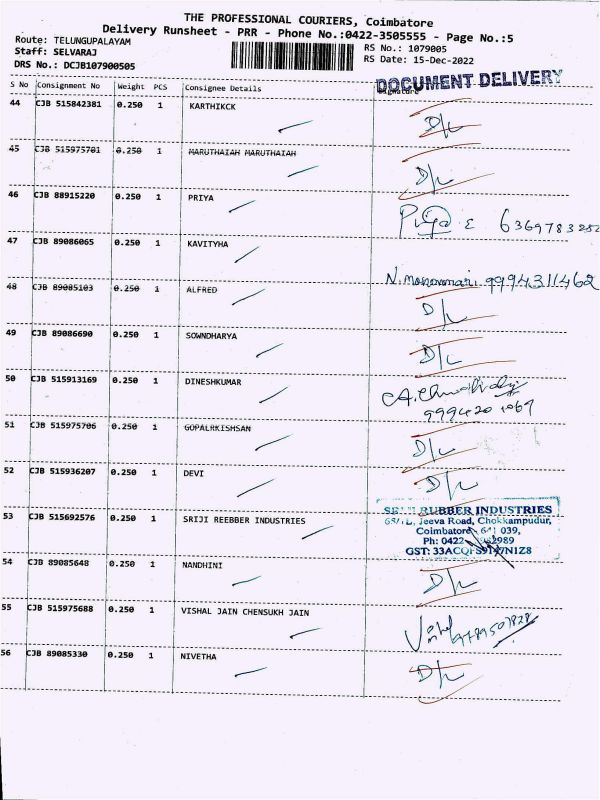 THE PROFESSIONAL COURIERS, Coimbatore
Delivery Runsheet - PRR - Phone No.:0422-3505555 - Page No.:5
Route: TELUNGUPALAYAM
Staff: SELVARAJ
DRS No.: DCJB107900505
RS No.: 1079005
RS Date: 15-Dec-2022
DOCUMENT DELIVERY
S No Consignment No Weight PCS Consignee Details Signature
44 CJB 515842381 0.250 1 KARTHIKCK D/L
45 CJB 515975701 0.250 1 MARUTHAIAH MARUTHAIAH D/L
46 CJB 88915220 0.250 1 PRIYA Priya E 6369783252
47 CJB 89086065 0.250 1 KAVITYHA N. 9994311462
48 CJB 89085103 0.250 1 ALFRED D/L
49 CJB 89086690 0.250 1 SOWNDHARYA D/L
50 CJB 515913169 0.250 1 DINESHKUMAR
51 CJB 515975706 0.250 1 GOPALRKISHSAN D/L
52 CJB 515936207 0.250 1 DEVI D/L
53 CJB 515692576 0.250 1 SRIJI REEBBER INDUSTRIES
RUBBER INDUSTRIES
Jeeva Road, Chokkampudur,
Coimbatore 641 039,
Ph: 0422
54 CJB 89085648 0.250 1 NANDHINI D/L
55 CJB 515975688 0.250 1 VISHAL JAIN CHENSUKH JAIN
56 CJB 89085330 0.250 1 NIVETHA D/L